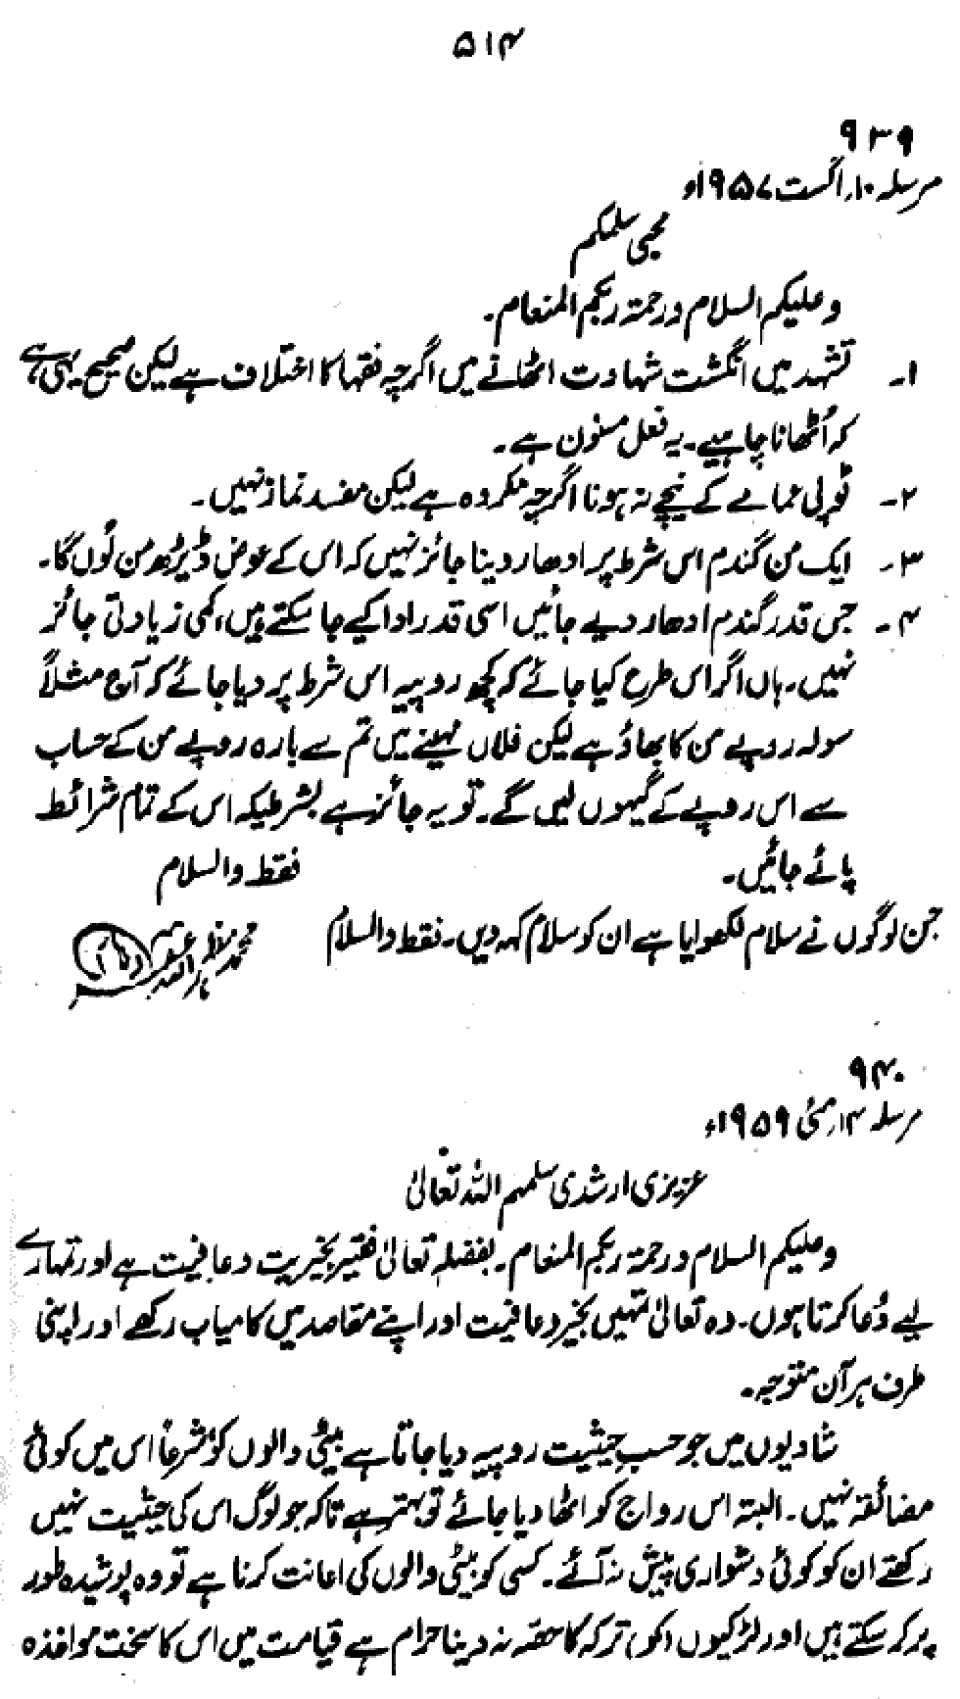 ۵۱۴
۹۳۹
مرسلہ ۱۰؍اگست ۱۹۵۷ء
محبی سلمکم
وعلیکم السلام ورحمۃ ربکم المنعام۔
۱۔ تشہد میں انگشت شہادت اٹھانے میں اگرچہ فقہا کا اختلاف ہے لیکن صحیح یہی ہے
کہ اُٹھانا چاہیے۔ یہ فعل مسنون ہے۔
۲۔ ٹوپی عمامے کے نیچے نہ ہونا اگرچہ مکروہ ہے لیکن مفسد نماز نہیں۔
۳۔ ایک من گندم اس شرط پر ادھار دینا جائز نہیں کہ اس کے عوض ڈیڑھ من لُوں گا۔
۴۔ جس قدر گندم ادھار دیے جائیں اسی قدر ادا کیے جا سکتے ہیں، کمی زیادتی جائز
نہیں۔ ہاں اگر اس طرح کیا جائے کہ کچھ روپیہ اس شرط پر دیا جائے کہ آج مثلاً
سولہ روپے من کا بھاؤ ہے لیکن فلاں مہینے میں تم سے بارہ روپے من کے حساب
سے اس روپے کے گیہوں لیں گے۔ تو یہ جائز ہے بشرطیکہ اس کے تمام شرائط
پائے جائیں۔ فقط والسلام
جن لوگوں نے سلام لکھوایا ہے ان کو سلام کہہ دیں۔ فقط والسلام محمد
۹۴۰
مرسلہ ۱۴؍مئی ۱۹۵۹ء
عزیزی ارشدی سلمہم اللہ تعالیٰ
وعلیکم السلام ورحمۃ ربکم المنعام۔ بفضلہٖ تعالیٰ فقیر بخیریت وعافیت ہے اور تمہارے
لیے دُعا کرتا ہوں۔ وہ تعالیٰ تمہیں بخیر وعافیت اور اپنے مقاصد میں کامیاب رکھے اور اپنی
طرف ہر آن متوجہ۔
شادیوں میں جو حسبِ حیثیت روپیہ دیا جاتا ہے بیٹی والوں کو شرعاً اس میں کوئی
مضائقہ نہیں۔ البتہ اس رواج کو اٹھا دیا جائے تو بہتر ہے تاکہ جو لوگ اس کی حیثیت نہیں
رکھتے ان کو کوئی دشواری پیش نہ آئے۔ کسی کو بیٹی والوں کی اعانت کرنا ہے تو وہ پوشیدہ طور
پر کر سکتے ہیں اور لڑکیوں (کو) ترکہ کا حصّہ نہ دینا حرام ہے قیامت میں اس کا سخت مواخذہ